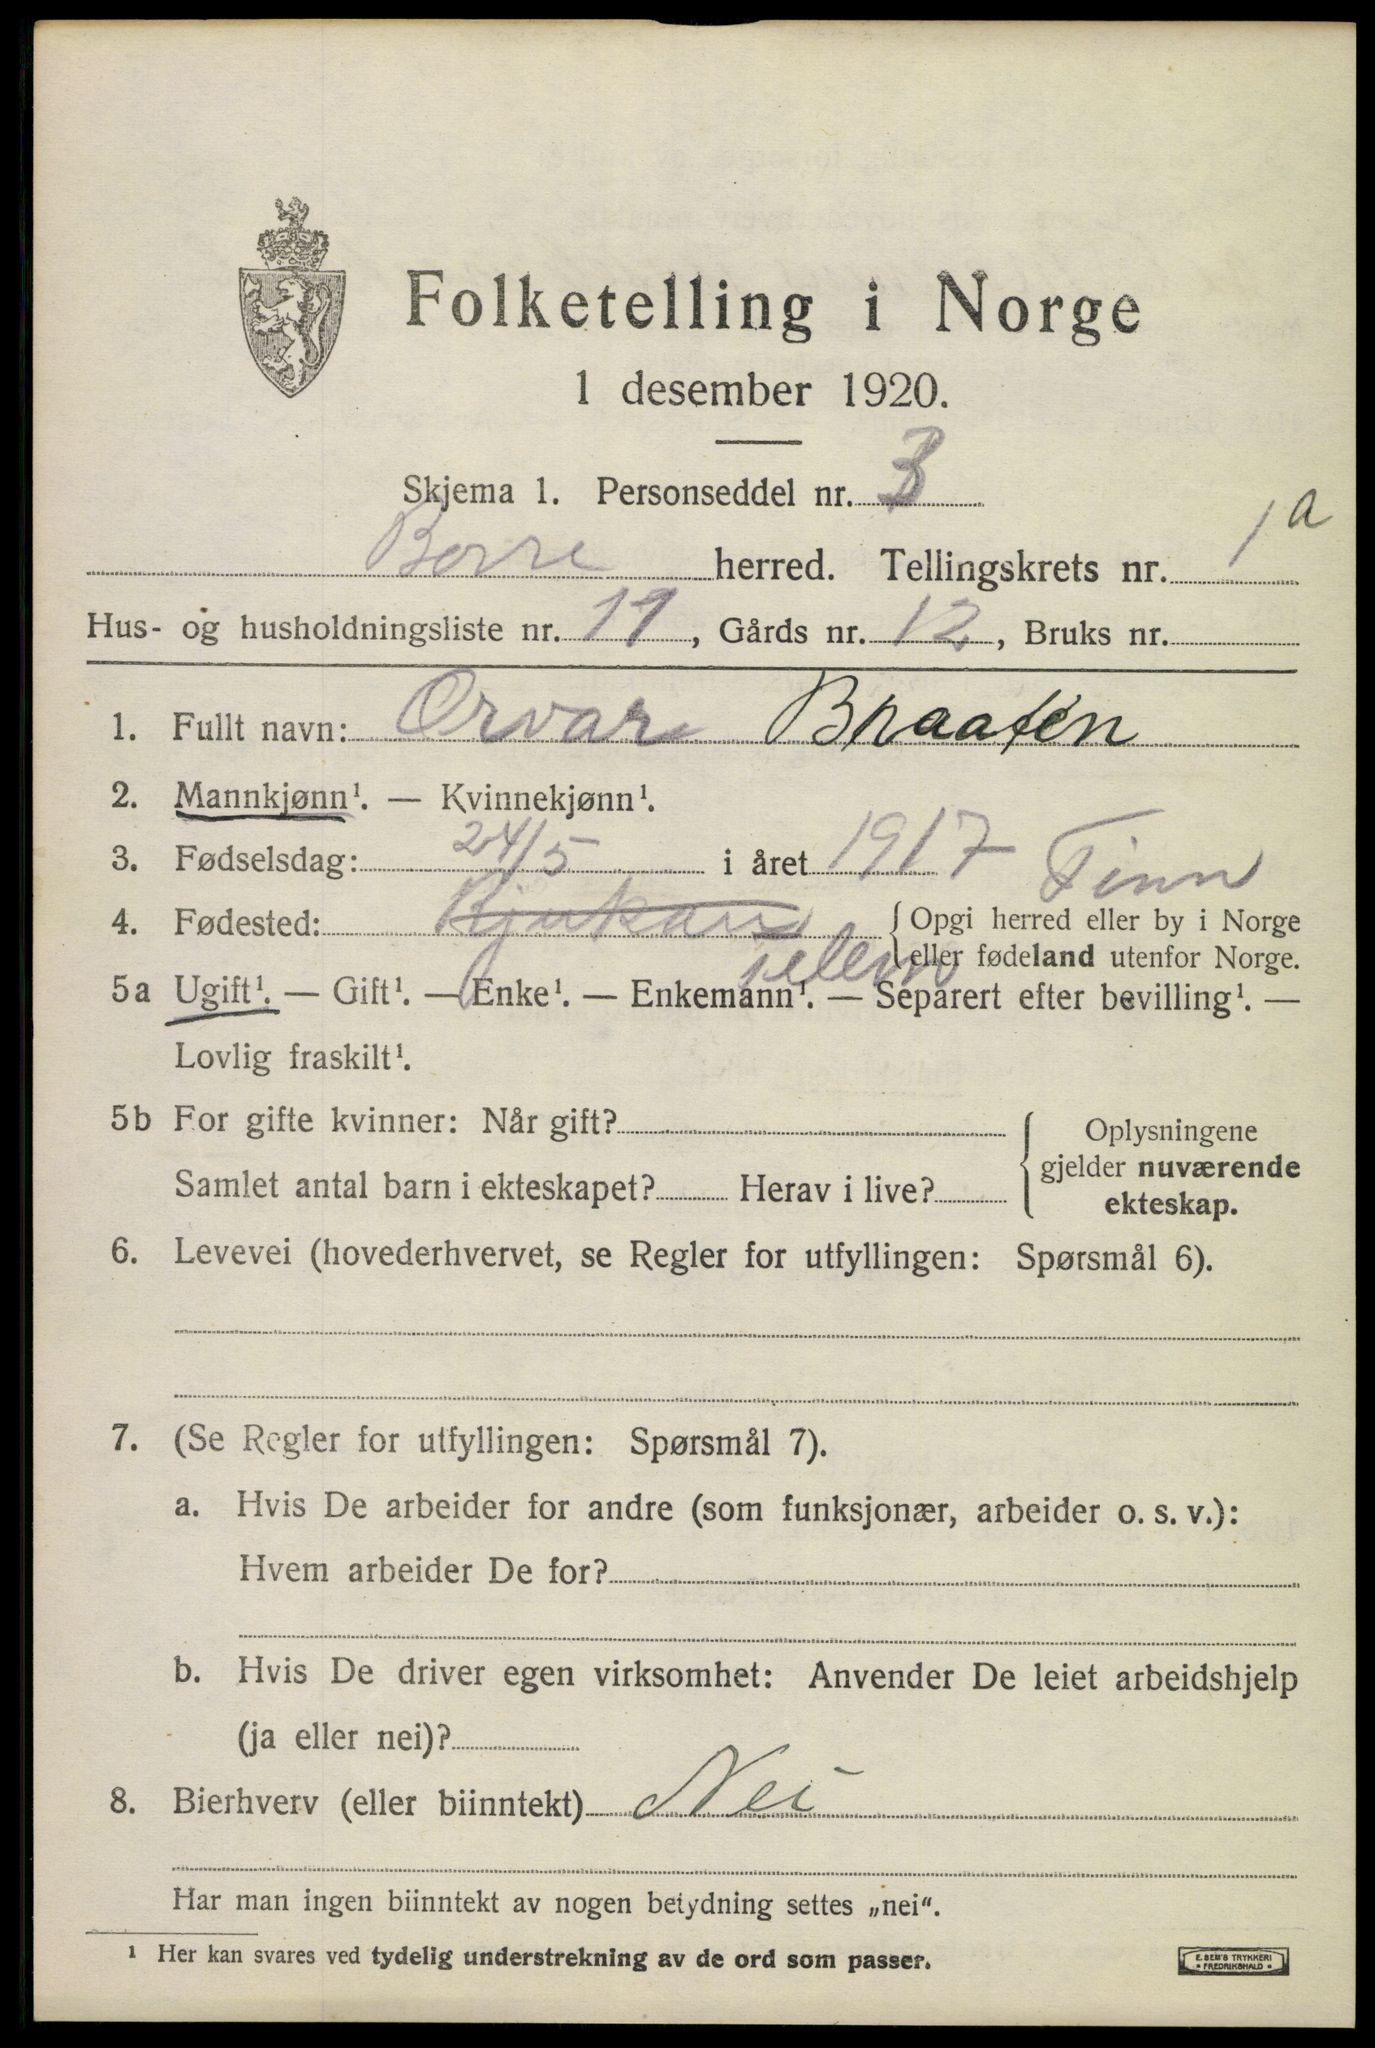 Folketelling i Norge
1 desember 1920.
Skjema 1. Personseddel nr. 3
Borre herred. Tellingskrets nr. 1 a
Hus- og husholdningsliste nr. 19, Gårds nr. 12, Bruks nr.
1. Fullt navn: Ørvar Braaten
2. Mannkjønn¹. — Kvinnekjønn¹.
3. Fødselsdag: 24/5 i året 1917
Tinn
4. Fødested: Rjukan { Opgi herred eller by i Norge
Telem { eller fødeland utenfor Norge.
5a Ugift¹. — Gift¹. — Enke¹. — Enkemann¹. — Separert efter bevilling¹. —
Lovlig fraskilt¹.
5b For gifte kvinner: Når gift? { Oplysningene
gjelder nuværende
Samlet antal barn i ekteskapet? Herav i live? ekteskap.
6. Levevei (hovederhvervet, se Regler for utfyllingen: Spørsmål 6).
7. (Se Regler for utfyllingen: Spørsmål 7).
a. Hvis De arbeider for andre (som funksjonær, arbeider o. s. v.):
Hvem arbeider De for?
b. Hvis De driver egen virksomhet: Anvender De leiet arbeidshjelp
(ja eller nei)?
8. Bierhverv (eller biinntekt) Nei
Har man ingen biinntekt av nogen betydning settes „nei“.
¹ Her kan svares ved tydelig understrekning av de ord som passer.
E. SEM'S TRYKKERI
* FREDRIKSHALD *